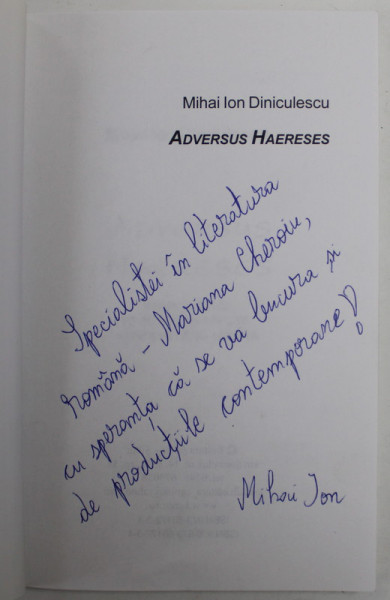 Mihai Ion Diniculescu
ADVERSUS HAERESES
Specialistei în literatura
română – Mariana Cheroiu,
cu speranța că se va bucura și
de producțiile contemporane!
Mihai Ion